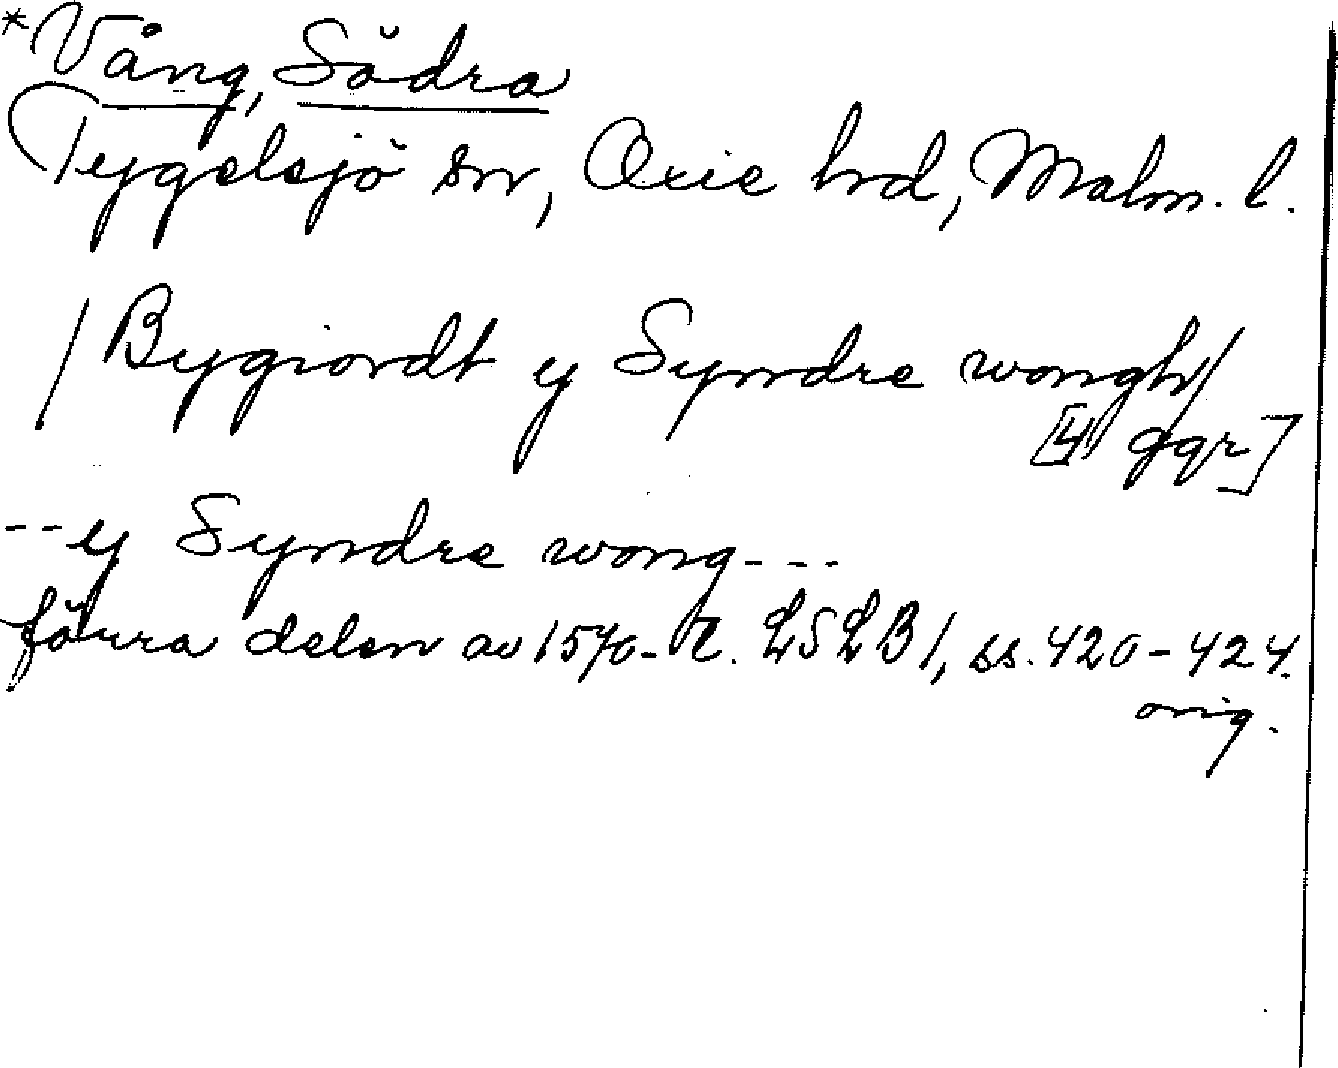 *Vång, Södra
Tygelsjö sn, Oxie hd, Malm. l.
/ Bygiordt y Syndre wongh/
[4 ggr]
-- y Syndre wong - - -
förra delen av 1570-t. LSLB 1, ss. 420-424.
orig.